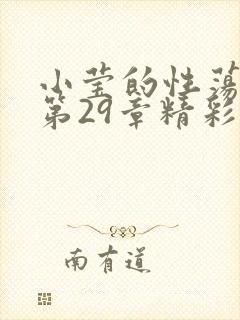 小莹的性荡
第29章精彩
南有道